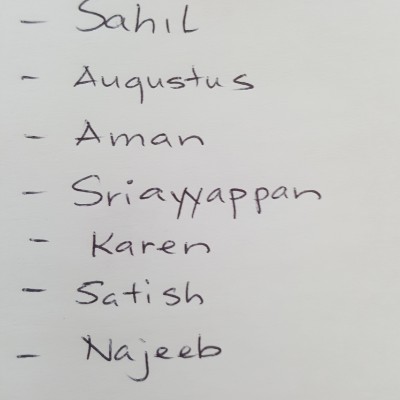 - Sahil
- Augustus
- Aman
- Sriayyappan
- Karen
- Satish
- Najeeb